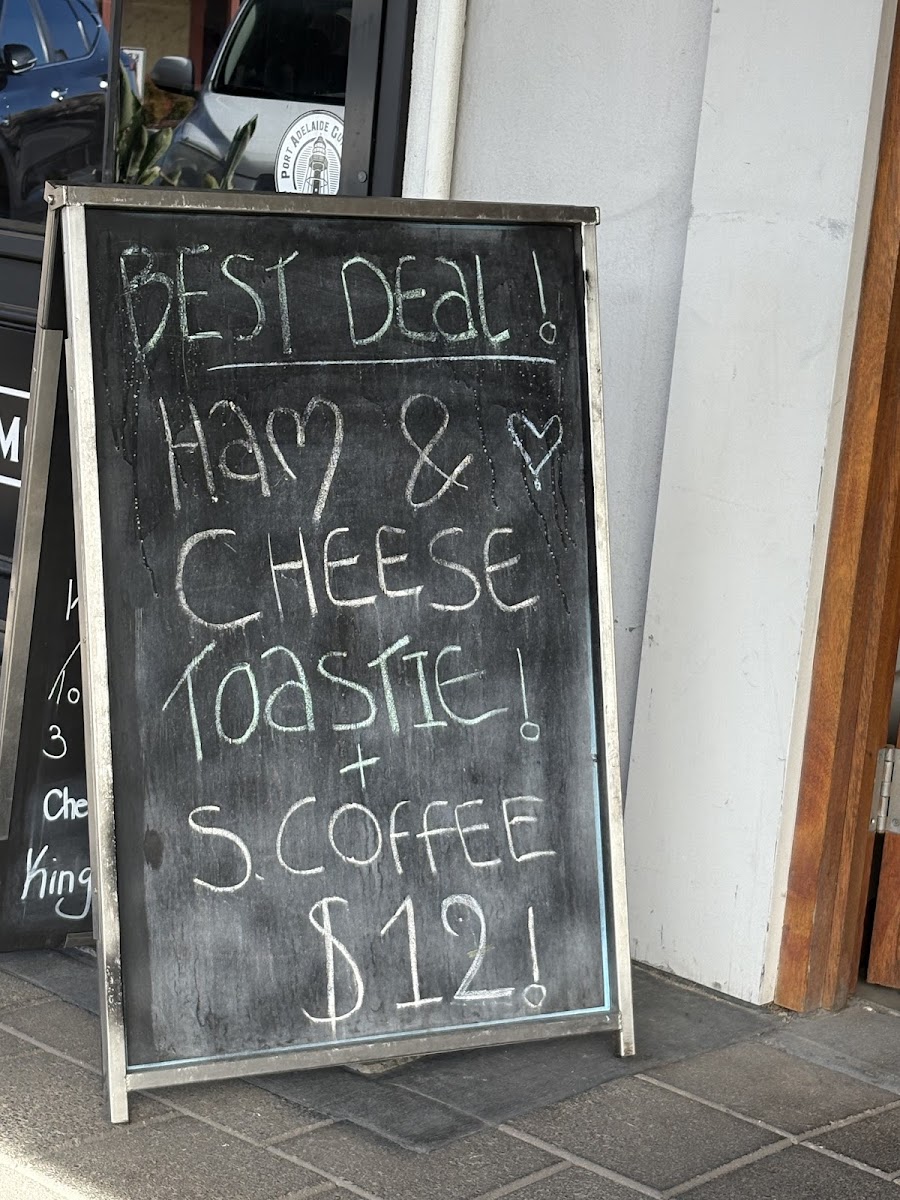 PORT ADELAIDE
BEST DEAL!
HAM &
CHEESE
TOASTIE!
+
S. COFFEE
$12!
M
To
3
Che
King